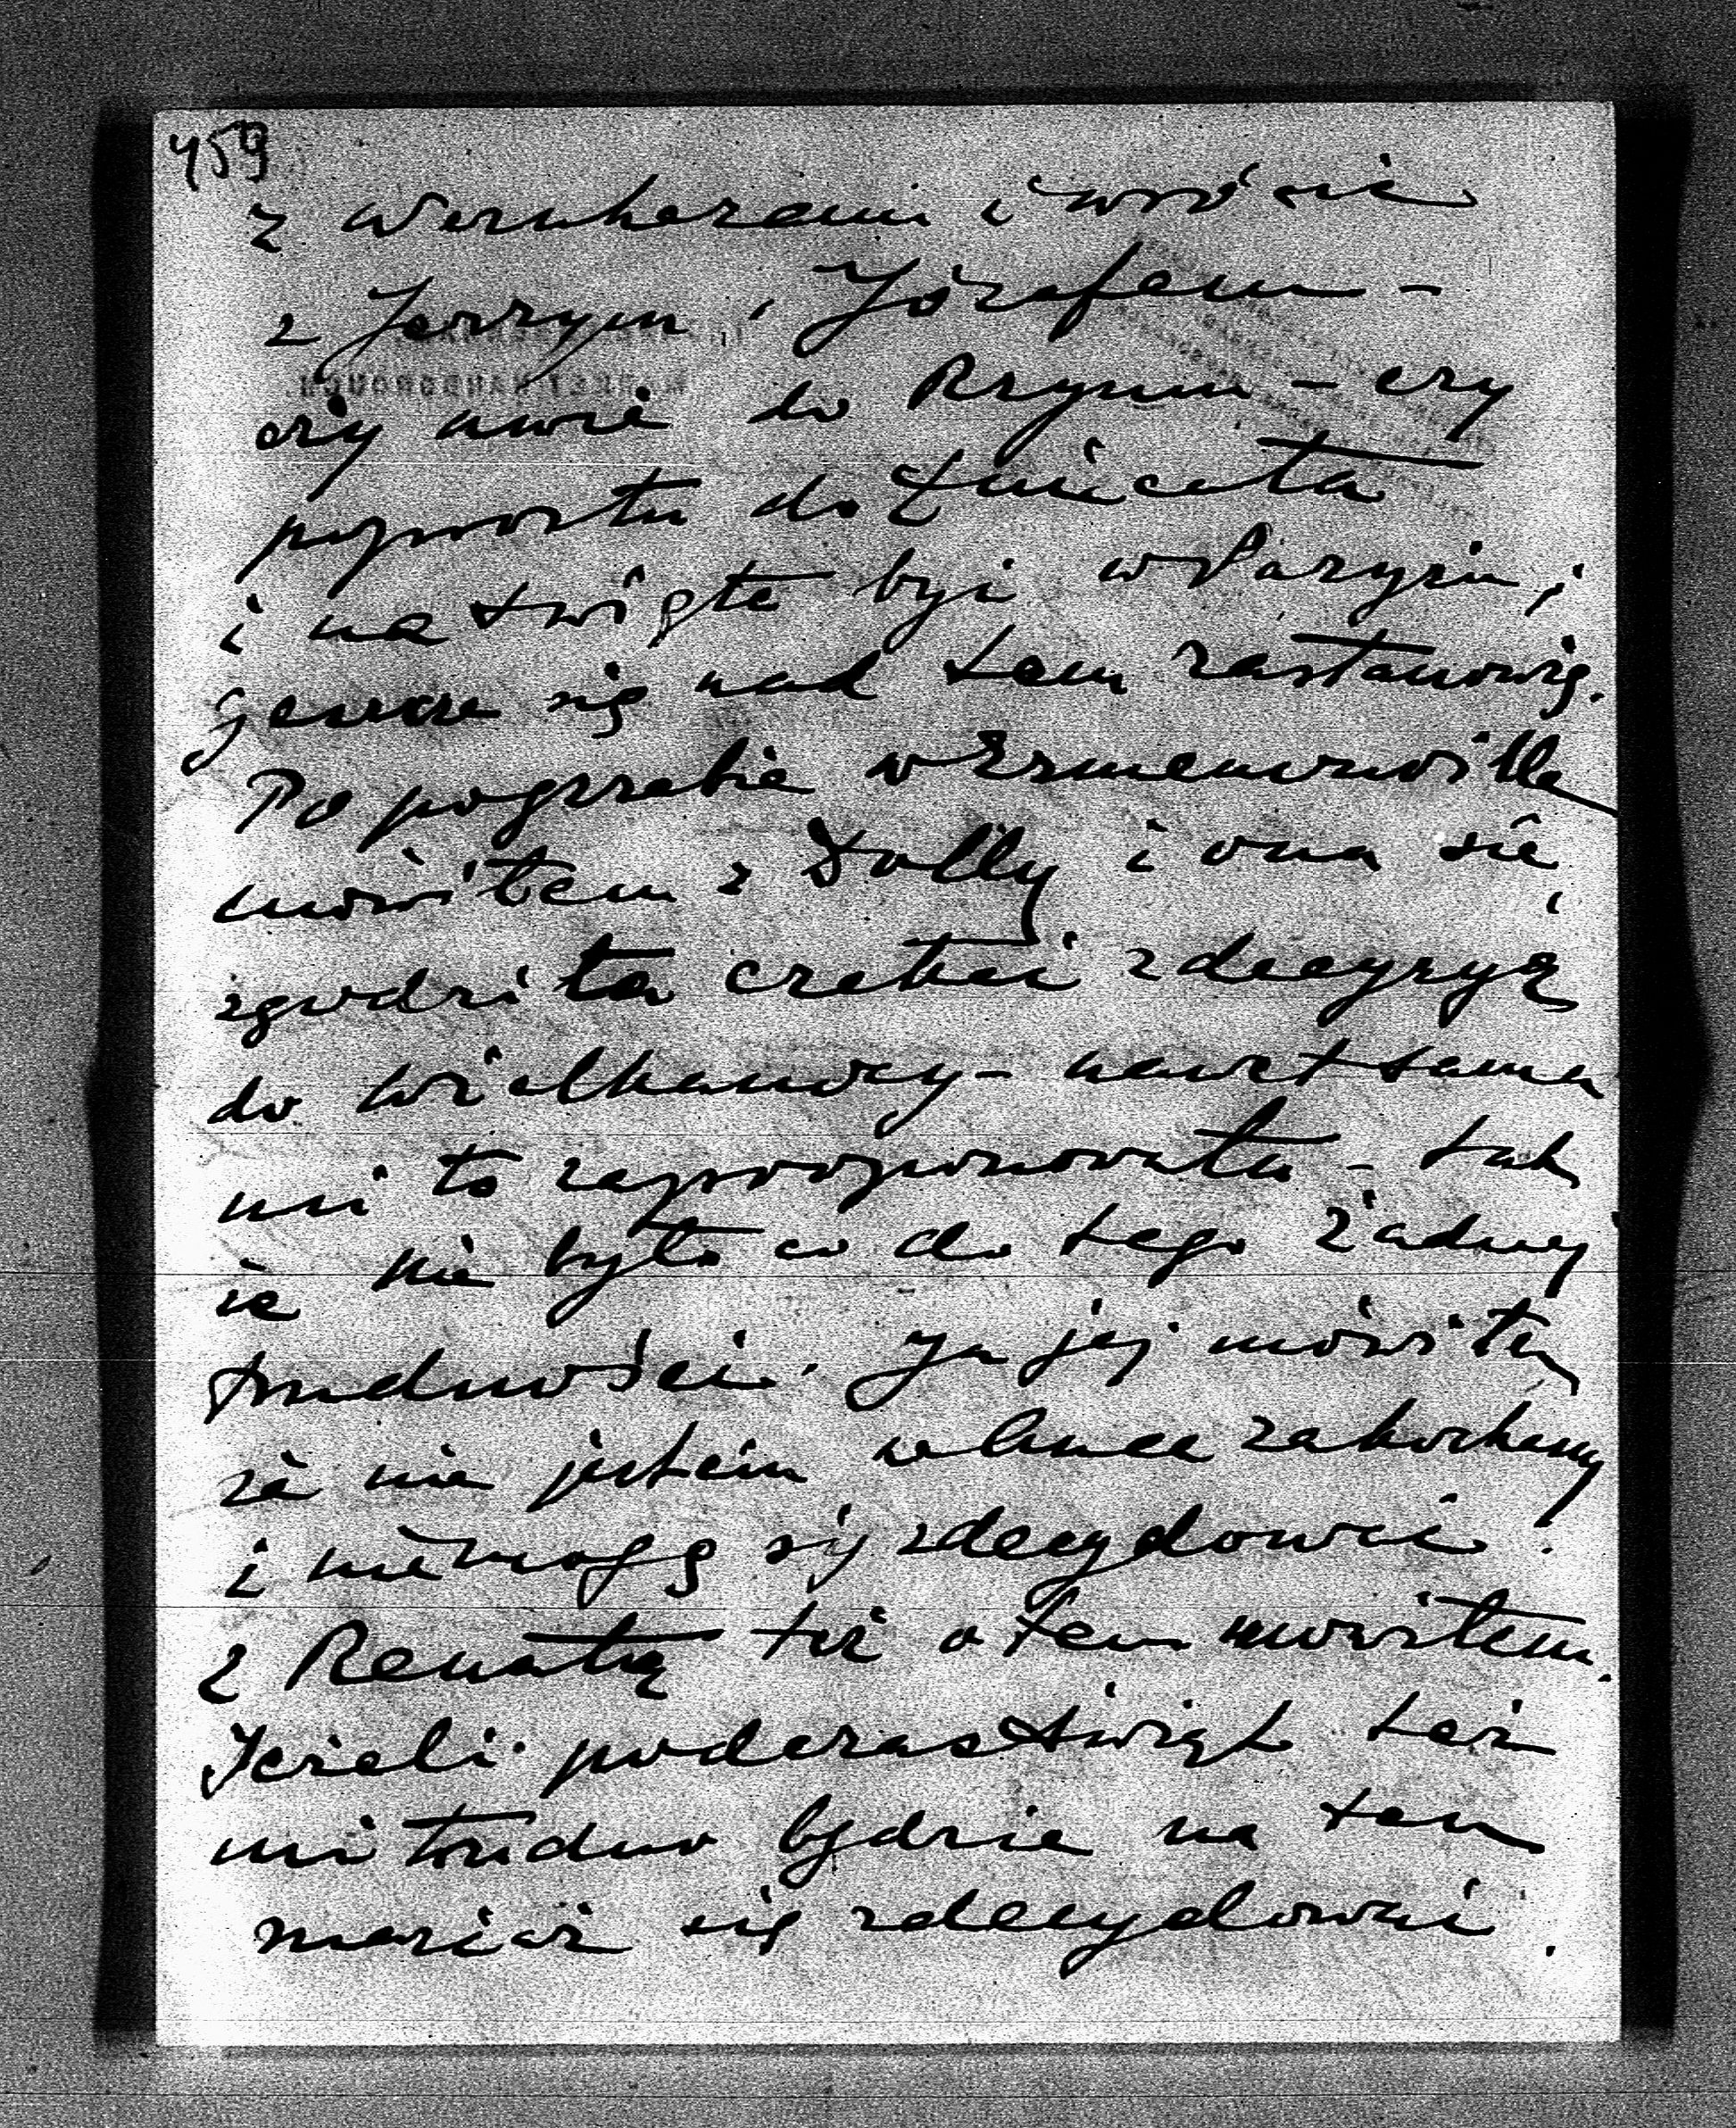 459
z Wernherami i wrócić
z Jerrym i Józefem -
czy może do Rzymu - czy
poprostu do Łańcuta
i na święta być w Paryżu;
jeszcze się nad tem zastanowię.
Po pogrzebie w Ermenonville
mówiłem z Dolly i ona się
zgodziła czekać z decyzyą
do Wielkanocy - nawet sama
mi to zaproponowała - tak
że nie było co do tego żadnej
trudności. Ja jej mówiłem
że nie jestem w Ance zakochany
i nie mogę się zdecydować.
z Renatą też o tem mówiłem.
Jeżeli podczas świąt też
mi trudno będzie na ten
mariaż się zdecydować.